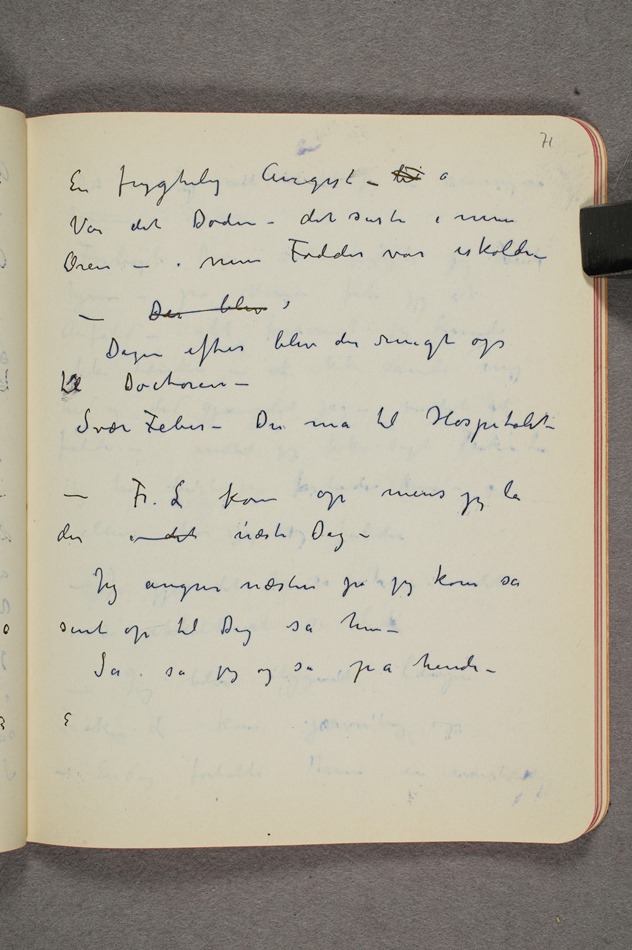 71
En frygtelig Angst – til a
Var det Døden – det suste i mine
Øren – . mine Fødder var iskolde
– Der blev
Dagen efter blev der ringt op
til Doctoren –
Svær Feber – Du må til Hospitalet –
– Fr. L kom op mens jeg la
der i det næste Dag –
Jeg angrer næsten på jeg kom sa
sent op til Dig sa hun –
Ja . sa jeg og sa på hende –